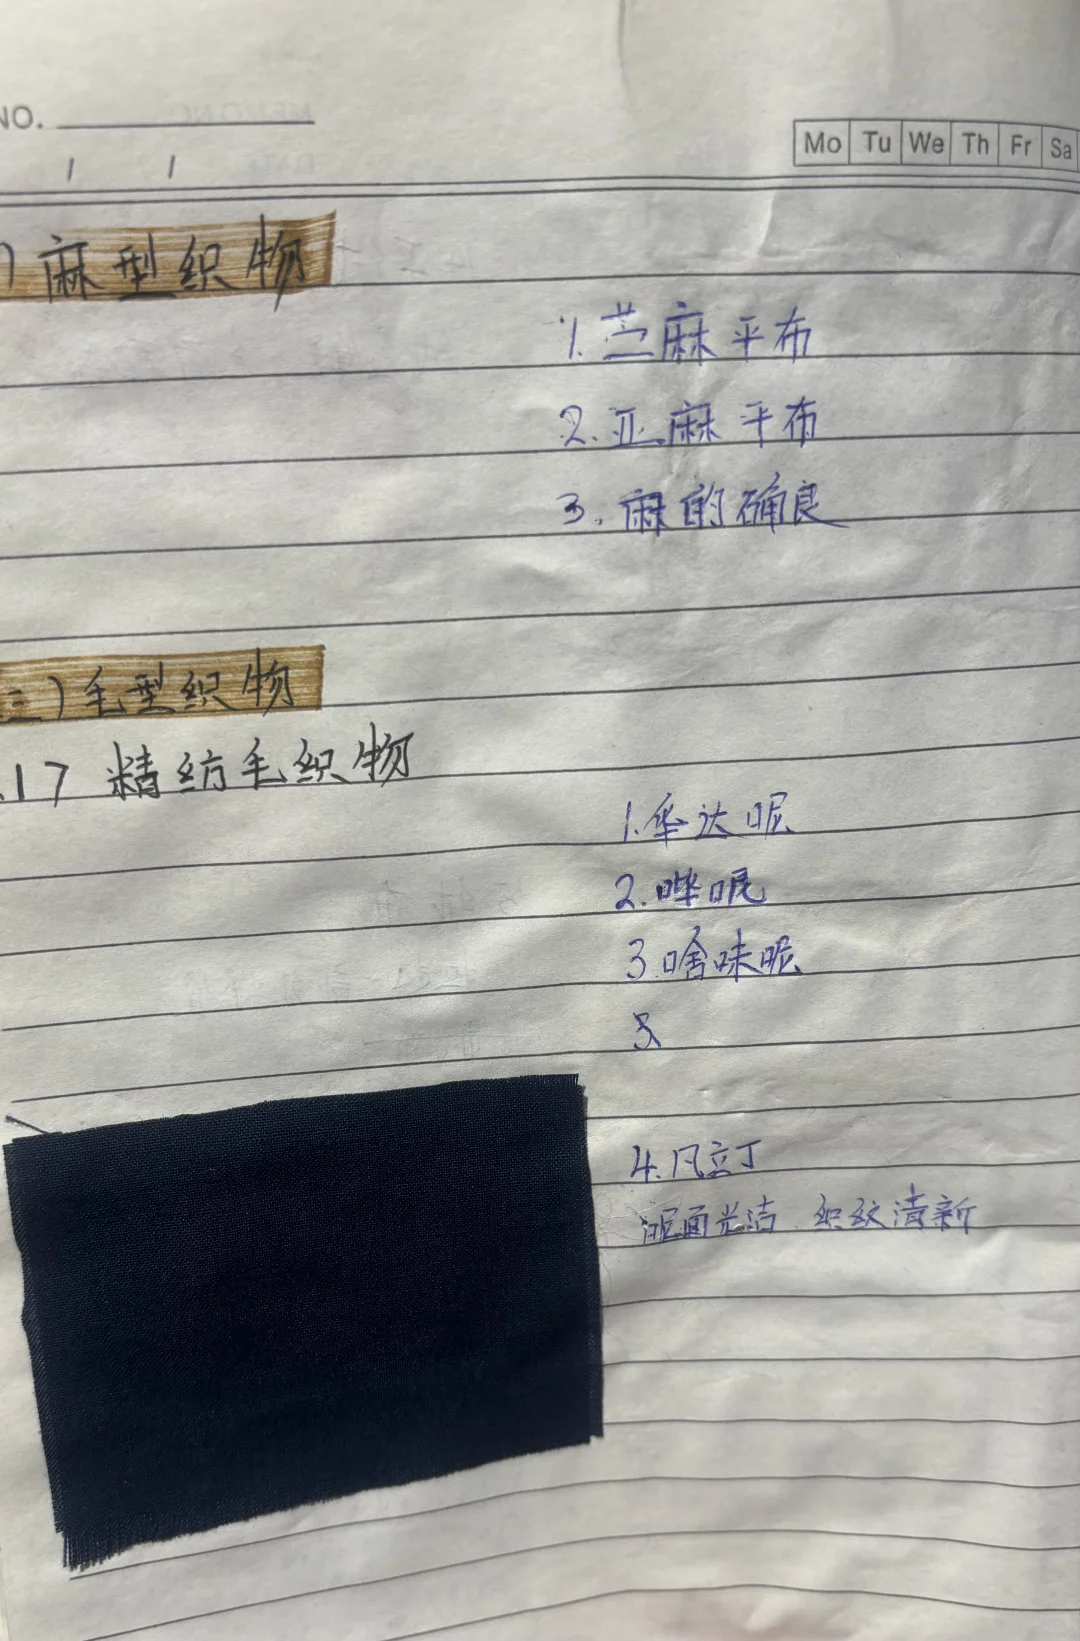 NO.
Mo Tu We Th Fr Sa
麻型织物
1.苎麻平布
2.亚麻平布
3.麻的确良
三)毛型织物
17 精纺毛织物
1.华达呢
2.哗呢
3.啥味呢
4.凡立丁
呢面光洁 织纹清新